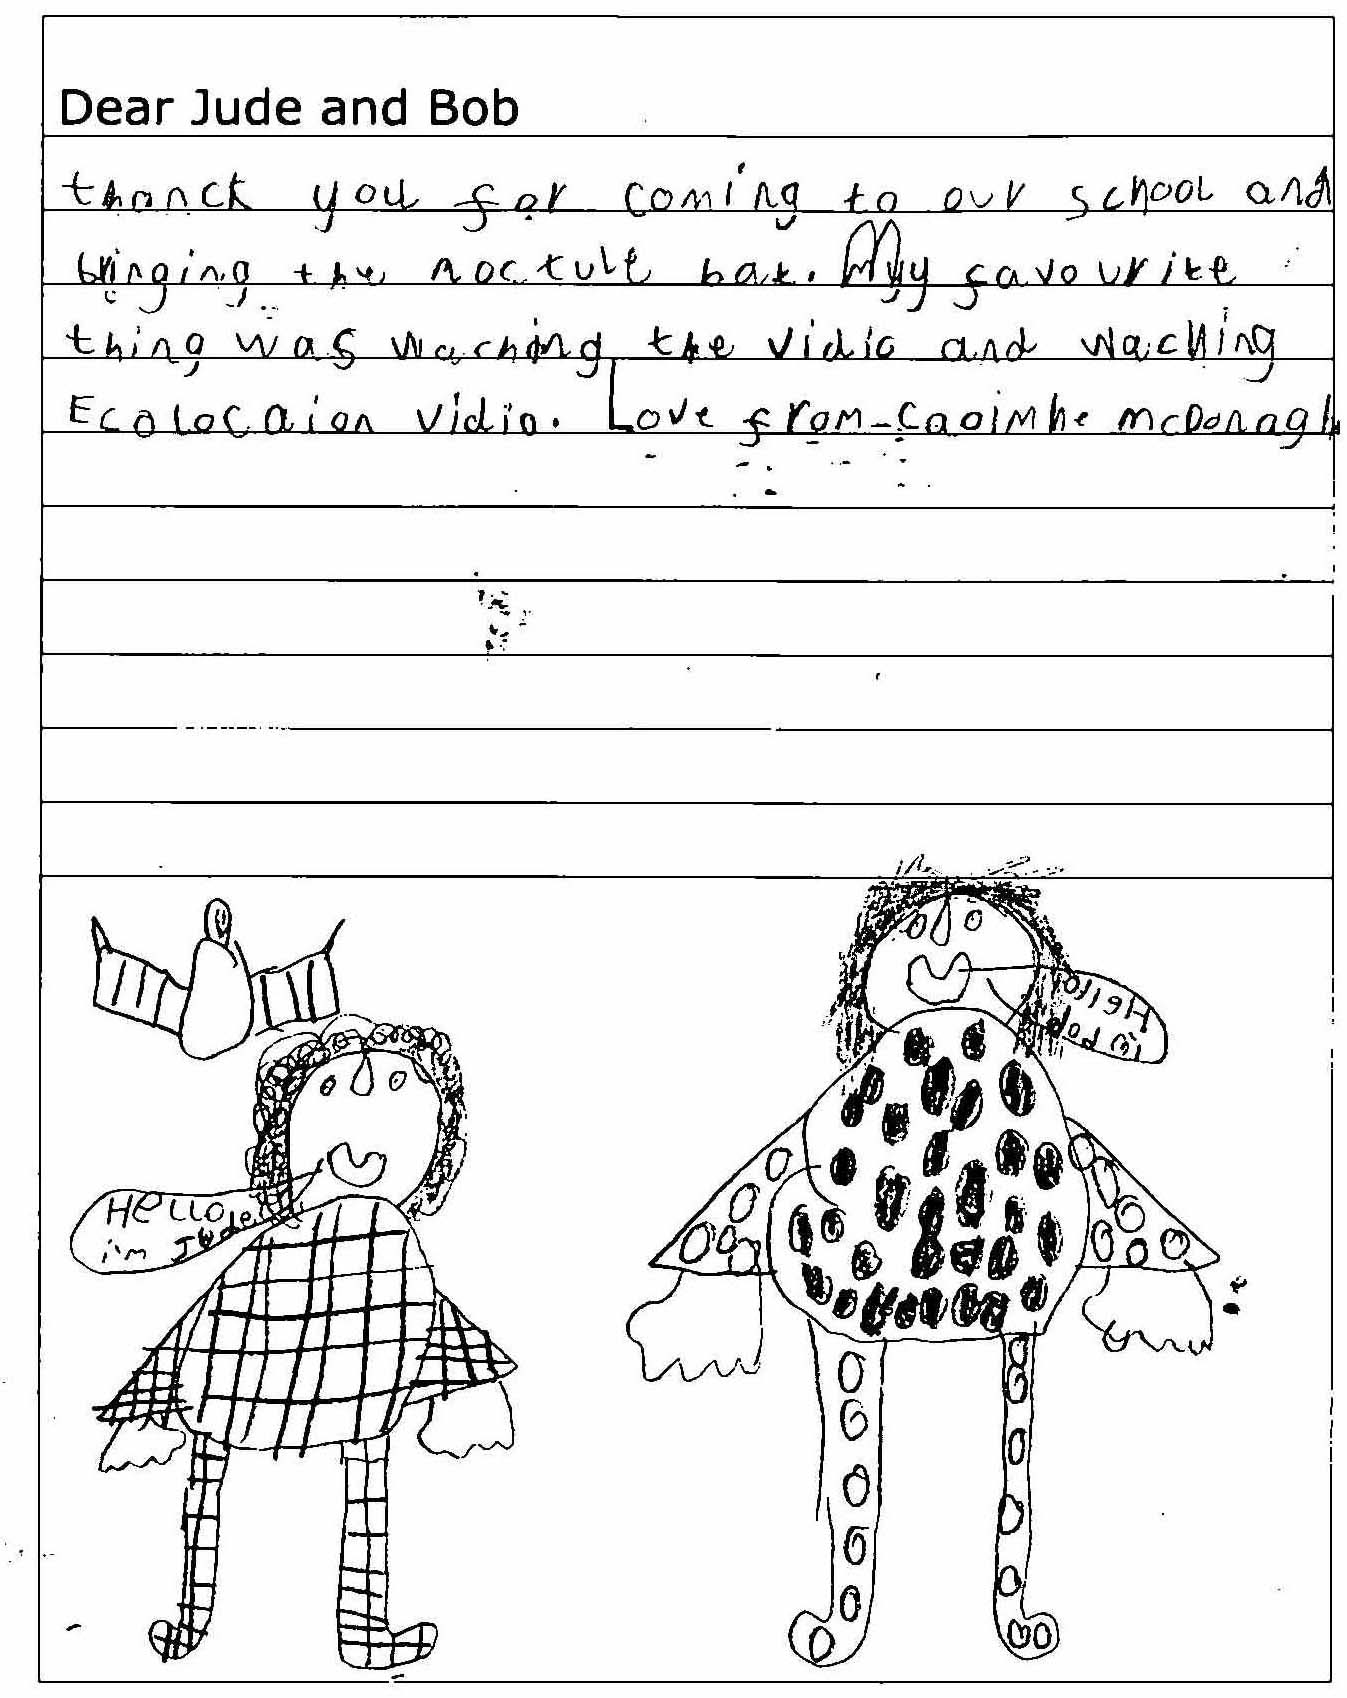 Dear Jude and Bob
thanck you for coming to our school and
bringing the noctule bat. My favourite
thing was waching the vidio and waching
Ecolocaion vidio. Love from Caoimhe mcDonagh
Hello
i'm Jude
Hello